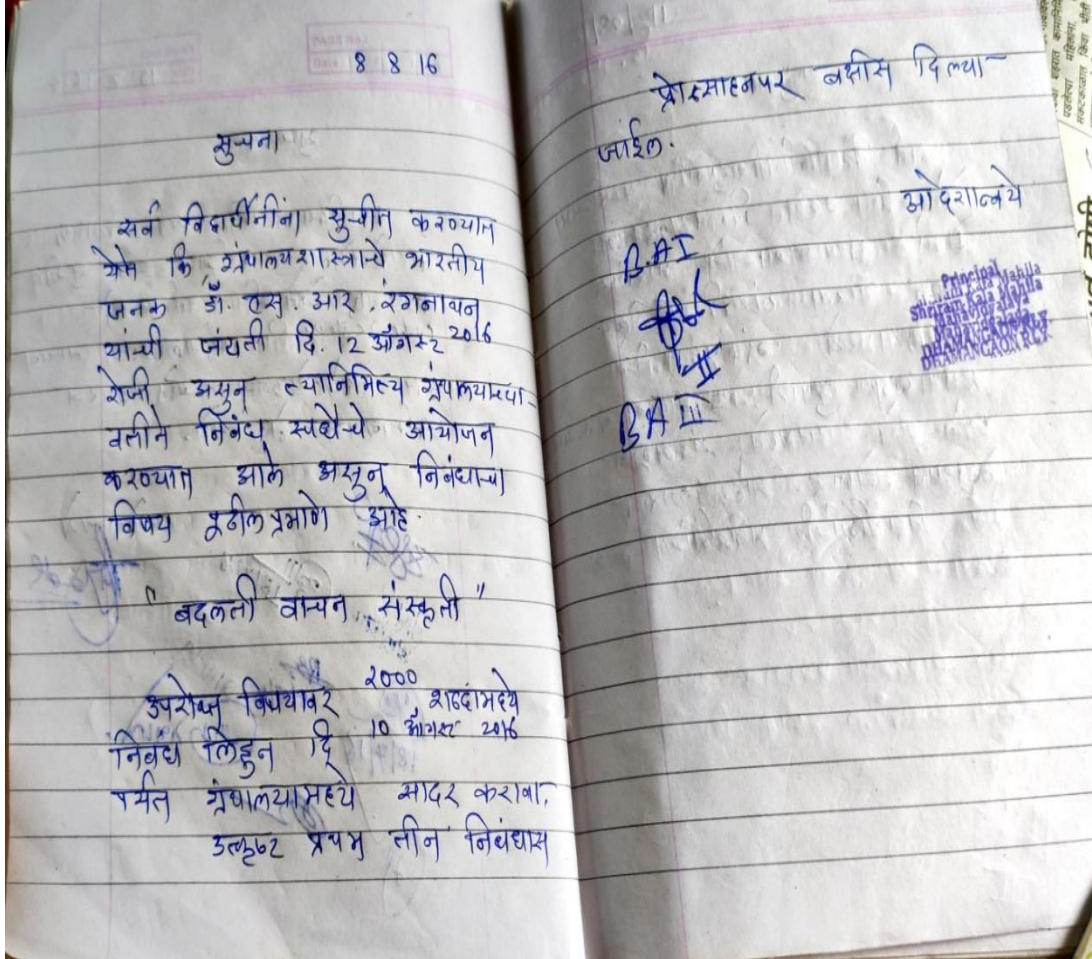 8 8 16
सुचना
सर्व विद्यार्थीनींना सुचीत करण्यात
येते कि, ग्रंथालयशास्त्राचे भारतीय
जनक डॉ. एस. आर. रंगनाथन
यांची जंयती दि. 12 ऑगस्ट 2016
रोजी असुन त्यानिमित्य ग्रंथालयाच्या-
वतीने निबंध स्पर्धेचे आयोजन
करण्यात आले असुन निबंधाचा
विषय पुढील प्रमाणे आहे.
"बदलती वाचंन संस्कृती"
उपरोक्त विषयावर 2000 शब्दांमध्ये
निबंध लिहुन दि 10 ऑगस्ट 2016
पर्यत ग्रंथालयामध्ये सादर करावा.
उत्कृष्ट प्रथम तीन निबंधास
प्रोत्साहनपर बक्षीस दिल्या-
जाईल.
आदेशान्वये
B.A I
II
B A III
Principal
DHAMANGAON RLY